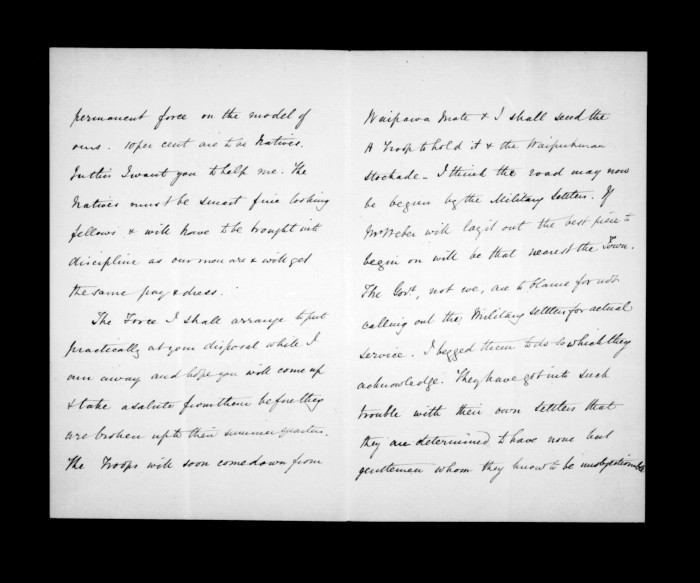 permanent force on the model of
ours. 10 per cent are to be Natives.
In this I want you to help me. The
Natives must be smart fine looking
fellows & will have to be brought into
discipline as our men are & will get
the same pay & dress.
The Force I shall arrange to put
practically at your disposal while I
am away and hope you will come up
& take a salute from them before they
are broken up to their summer quarters.
The Troops will soon come down from
Waipawa Mate & I shall send the
A Troop to hold it & the Waipukurau
stockade - I think the road may now
be begun by the Military Settlers. If
Mr Weber will lay it out the best piece to
begin on will be that nearest the Town.
The Govt, not we, are to blame for not
calling out the Military settlers for actual
service. I begged them to do so which they
acknowledge. They have got into such
trouble with their own settlers that
they are determined to have none but
gentlemen whom they know to be